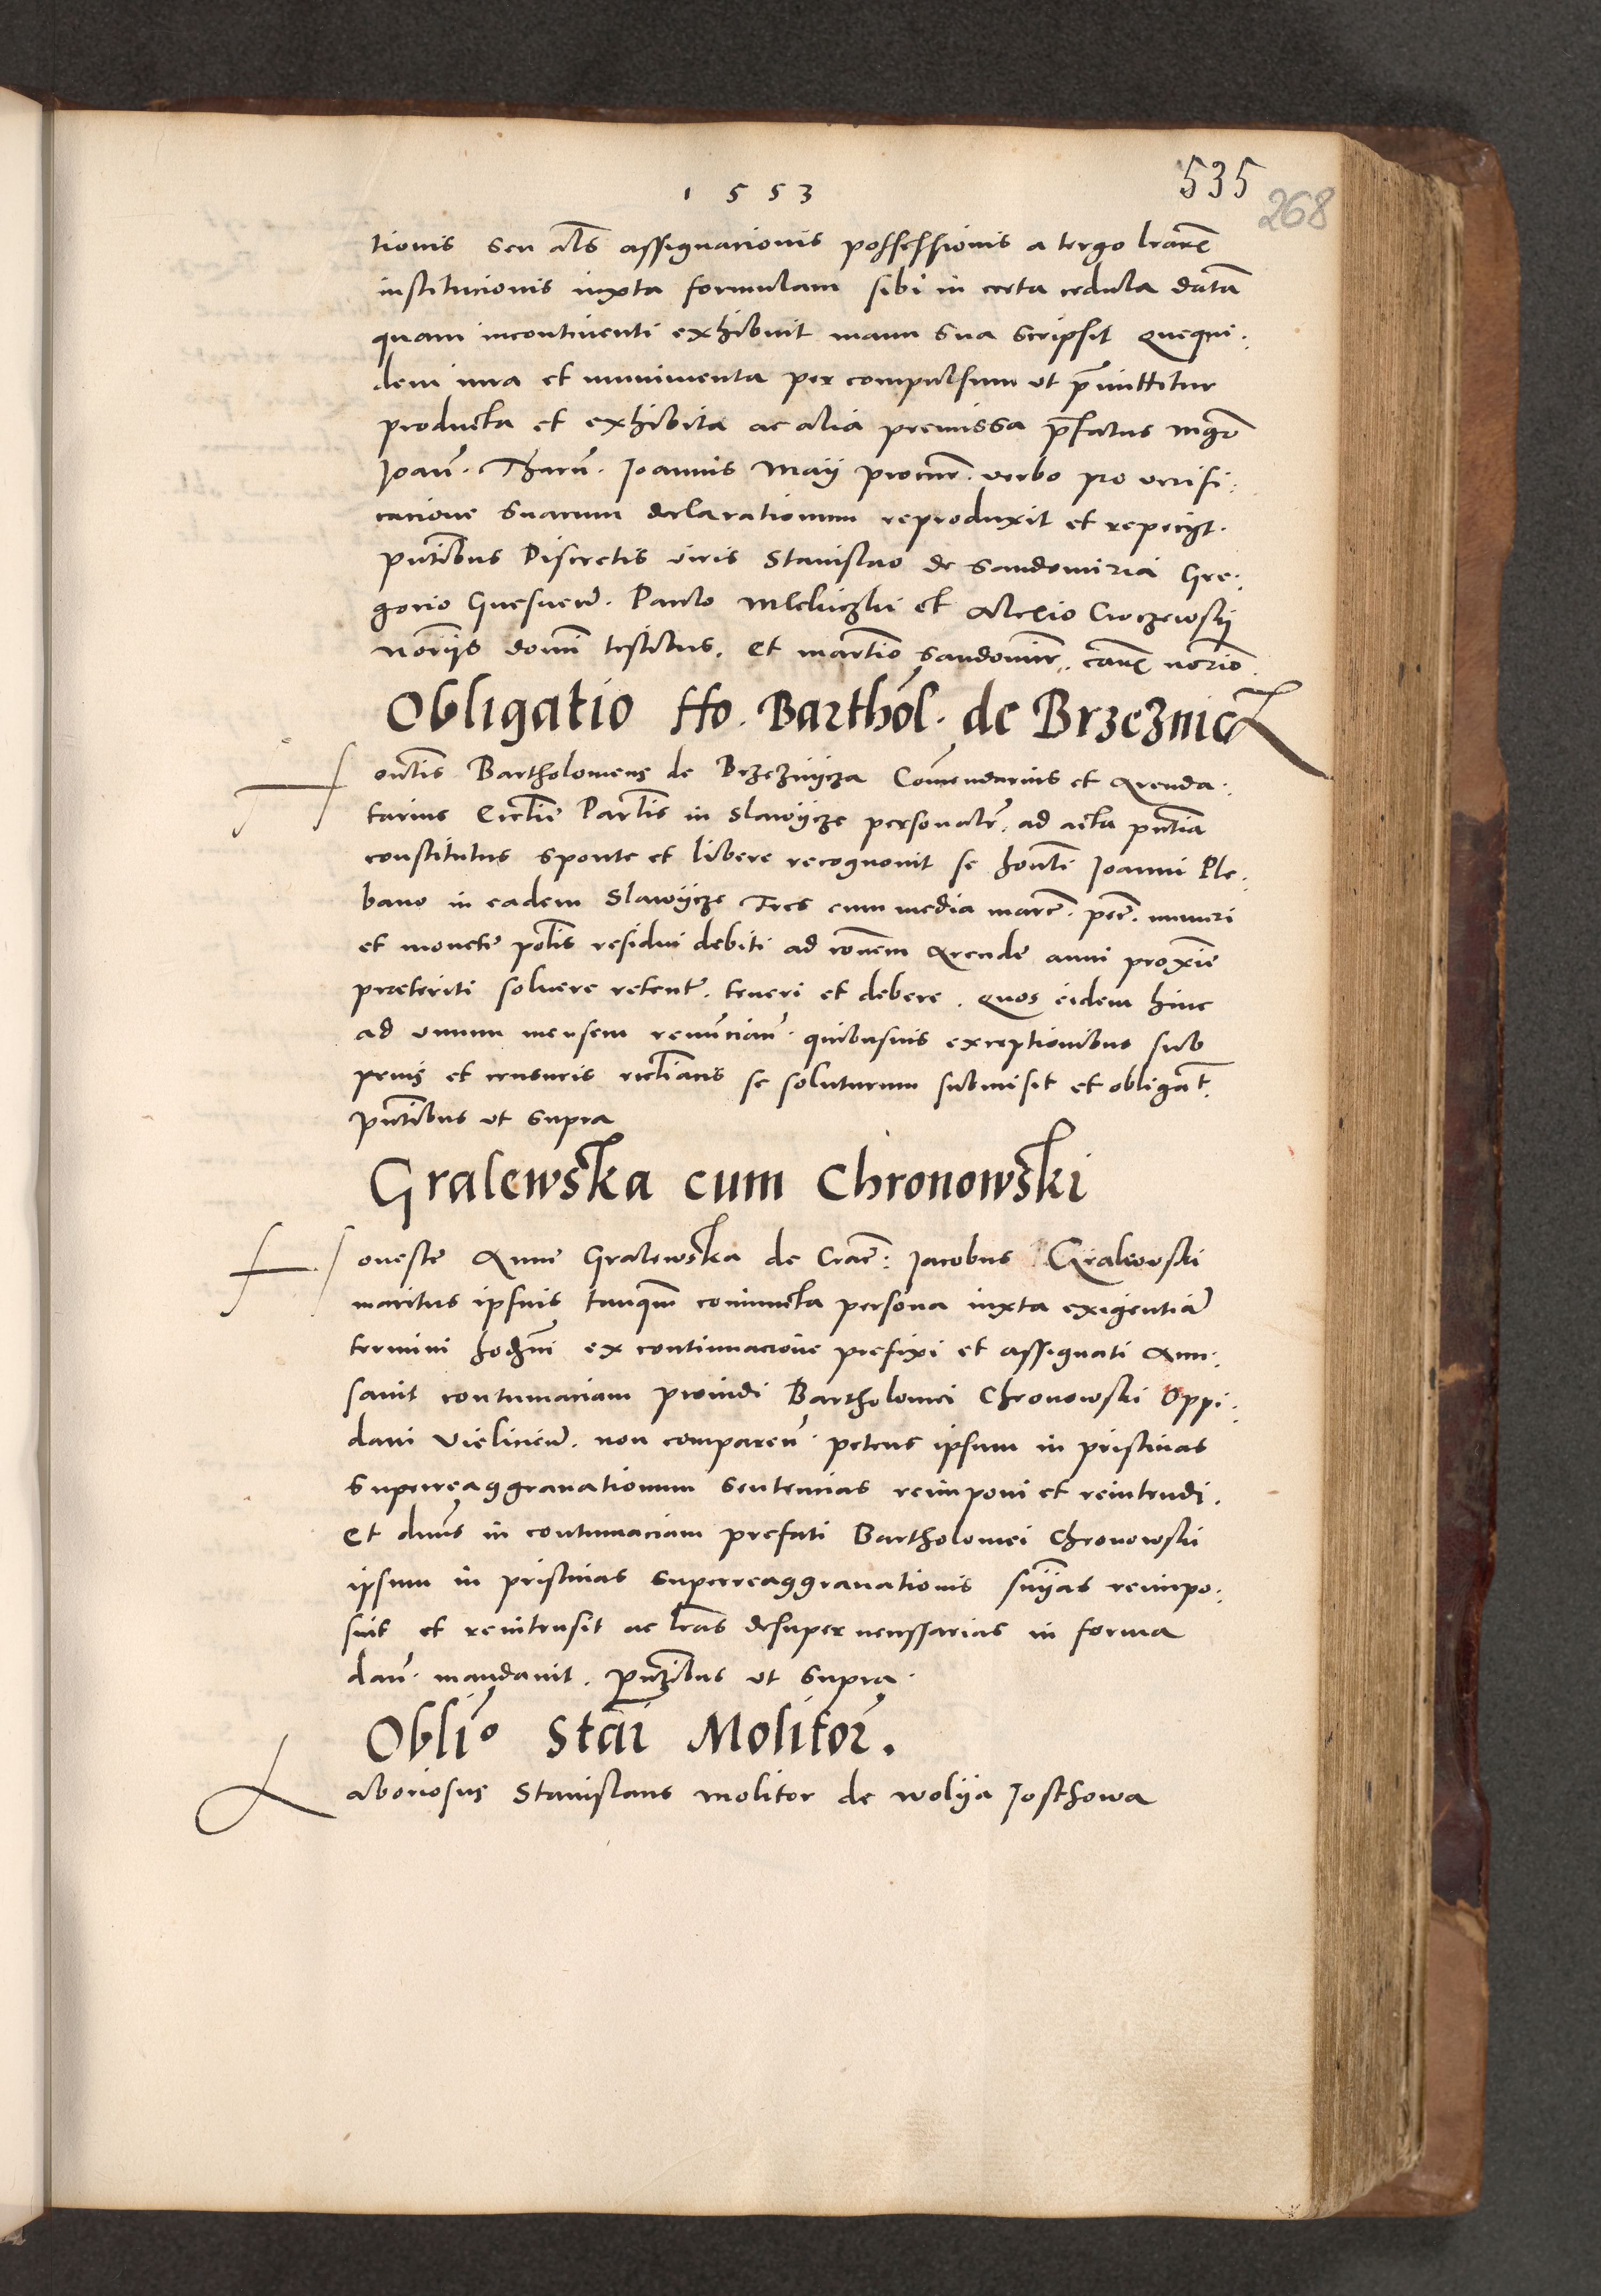 1553
535
268
tionis seu als assignationis possessionis a tergo lrarũ
institucionis iuxta formulam sibi in certa cedula datã
quam incontinenti exhibuit manu sua scripsit Quequi:
dem iura et munimenta per compulsum ut p̃mittitur
producta et exhibita ac alia premissa p̃fatus mgr̃
Joañ. Joannis Maÿ procur̃. verbo pro verifi:
cacione suarum declarationum reproduxit et repetÿt.
Pñtibus Discretis viris Stanislao de Sandomiria Gre:
gorio Gnesneñ. Paulo et Alexio
norÿs domi testibus. Et martino Sandomir̃. cauẽ norio.
Obligatio Ho. Barthol. de Brzeznicz
Honlis Bartholomeus de Brzeznÿcza Com̃endarius et Arenda:
tarius Ecclie Parlis in Slawÿcze personalr̃. ad acta pñtia
constitutus sponte et libere recognovit se honli Joanni Ple:
bano in eadem Slawÿcze Tres cum media marc̃. pec̃. numeri
et monete polis residui debiti ad ronem Arende anni proxie
praeteriti solvere retent̃. teneri et debere. Quos eidem hinc
ad unum mensem renunciañ. quibusvis exceptionibus sub
penis et censuris ecclîacis se soluturum submisit et obligat̃.
Pñtibus ut supra
Gralewska cum Chronowski
Honeste Anne Gralewska de Crac̃: Jacobus Gralewski
maritus ipsius tanquam coniuncta persona iuxta exigentiã
termini hodierni ex continuacione prefixi et assignati Accu:
savit contumaciam providi Bartholomei Chronowski Oppi:
dani Vieliceñ. non compareñ. petens ipsum in pristinas
superreaggravationum sententias reimponi et reintrudi.
Et dnus in contumaciam prefati Bartholomei Chronowski
ipsum in pristinas superreaggravationis snÿas reimpo:
suit et reintrusit ac lras desuper necessarias in forma
dañ. mandavit. Pñtibus ut supra.
Oblio Stãi Molitor̃.
Laboriosus Stanislaus molitor de Wolÿa Josthowa